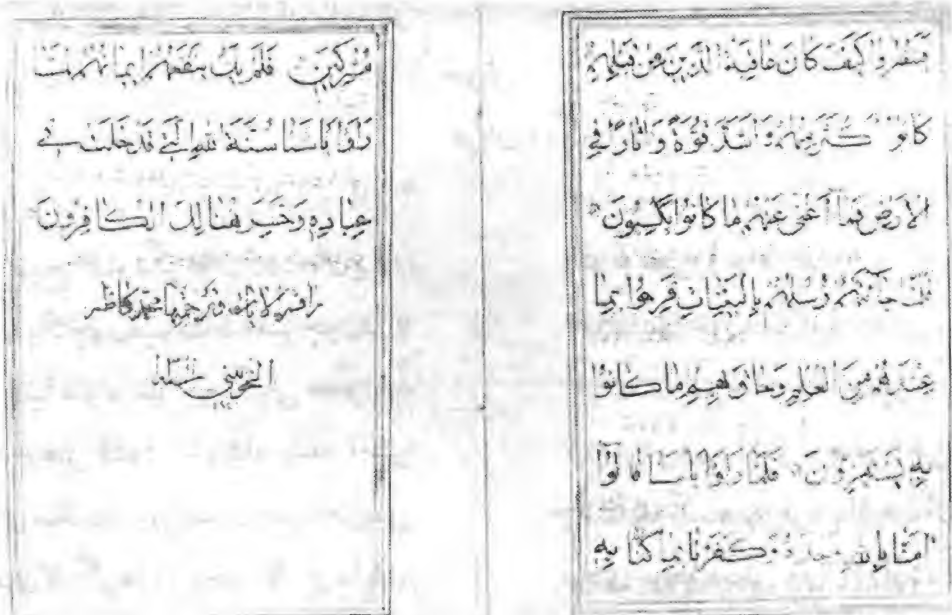 فينظروا كيف كان عاقبة الذين من قبلهم
كانوا اكثر منهم و اشد قوة و اثارا في
الارض فما اغنى عنهم ما كانوا يكسبون
فلما جآءتهم رسلهم بالبينات فرحوا بما
عندهم من العلم وحاق بهم ما كانوا
به يستهزؤن فلما راوا باسنا قالوا
امنا بالله وحده و كفرنا بما كنا به
مشركين فلم يك ينفعهم ايمانهم لما
راوا باسنا سنة الله التي قد خلت في
عباده وخسر هنالك الكافرون
محمد كاظم